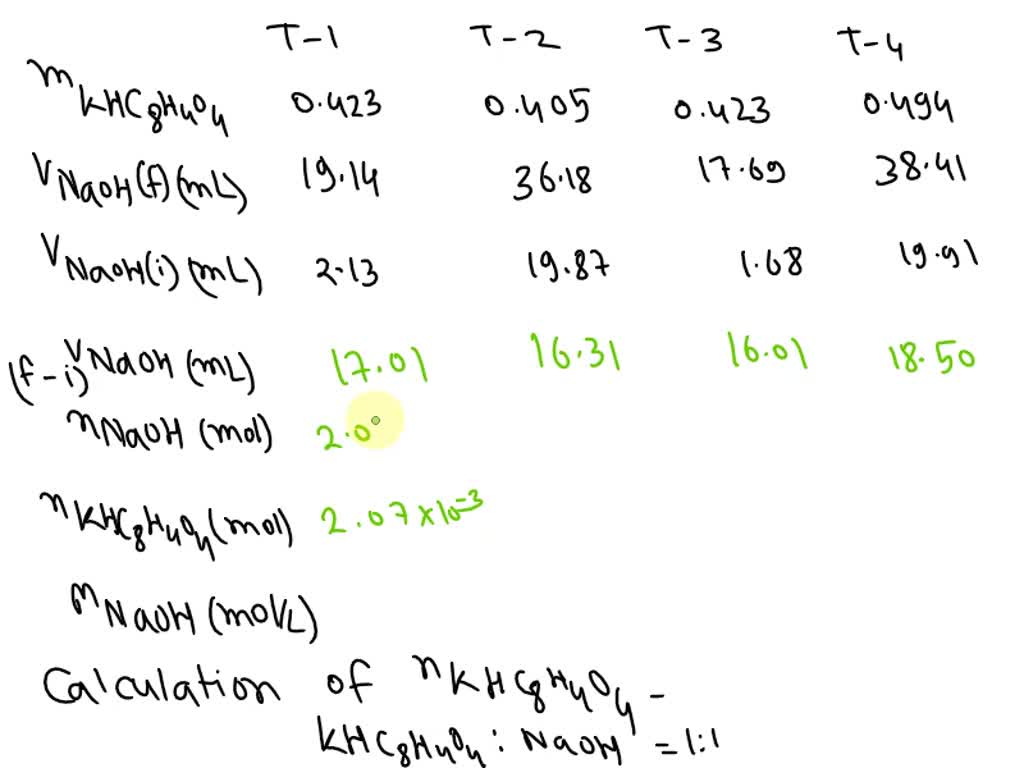 T-1 T-2 T-3 T-4
mKHC8H4O4 0.423 0.405 0.423 0.494
VNaOH(f)(mL) 19.14 36.18 17.69 38.41
VNaOH(i)(mL) 2.13 19.87 1.68 19.91
(f-i) VNaOH(mL) 17.01 16.31 16.01 18.50
nNaOH(mol) 2.0
nKHC8H4O4(mol) 2.07×10-3
MNaOH(mol/L)
Calculation of nKHC8H4O4-
KHC8H4O4:NaOH = 1:1